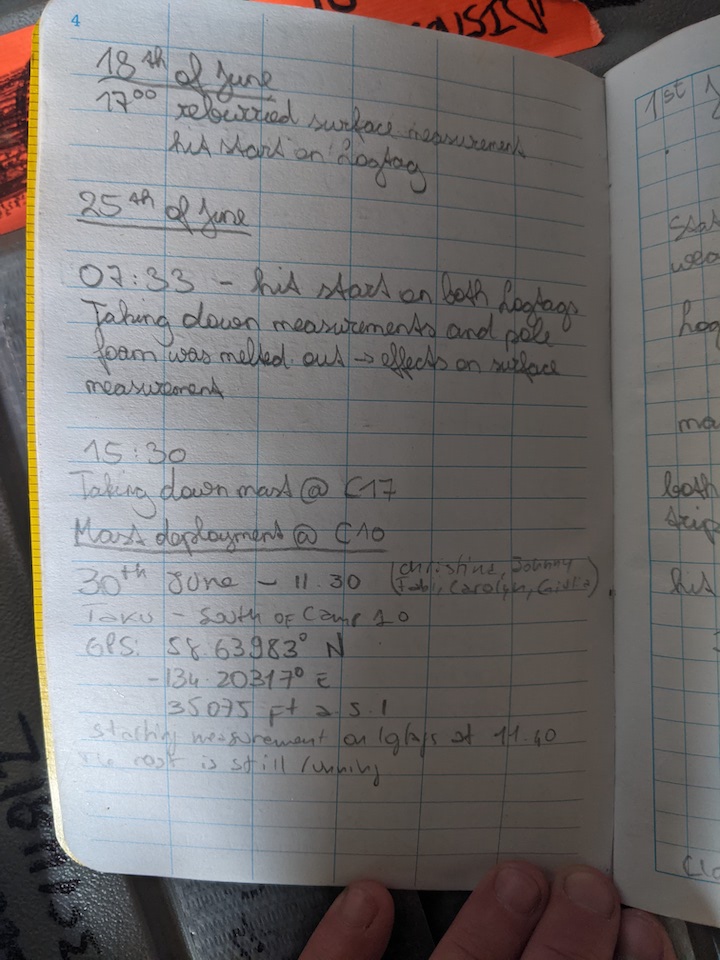 4
18th of June
17⁰⁰ reburried surface measurement
hit start on Logtag
25th of June
07:33 - hit start on both Logtags
Taking down measurements and pole
foam was melted out → effects on surface
measurement
15:30
Taking down mast @ C17
Mast deployment @ C10
30th June - 11.30 (Christine, Johnny
Tabi, Carolyn,
Taku - South of Camp 10
GPS: 58.63983° N
-134.20317° E
35075 ft a.s.l
starting measurement on at 11.40
The rest is still running
1st
both
hit